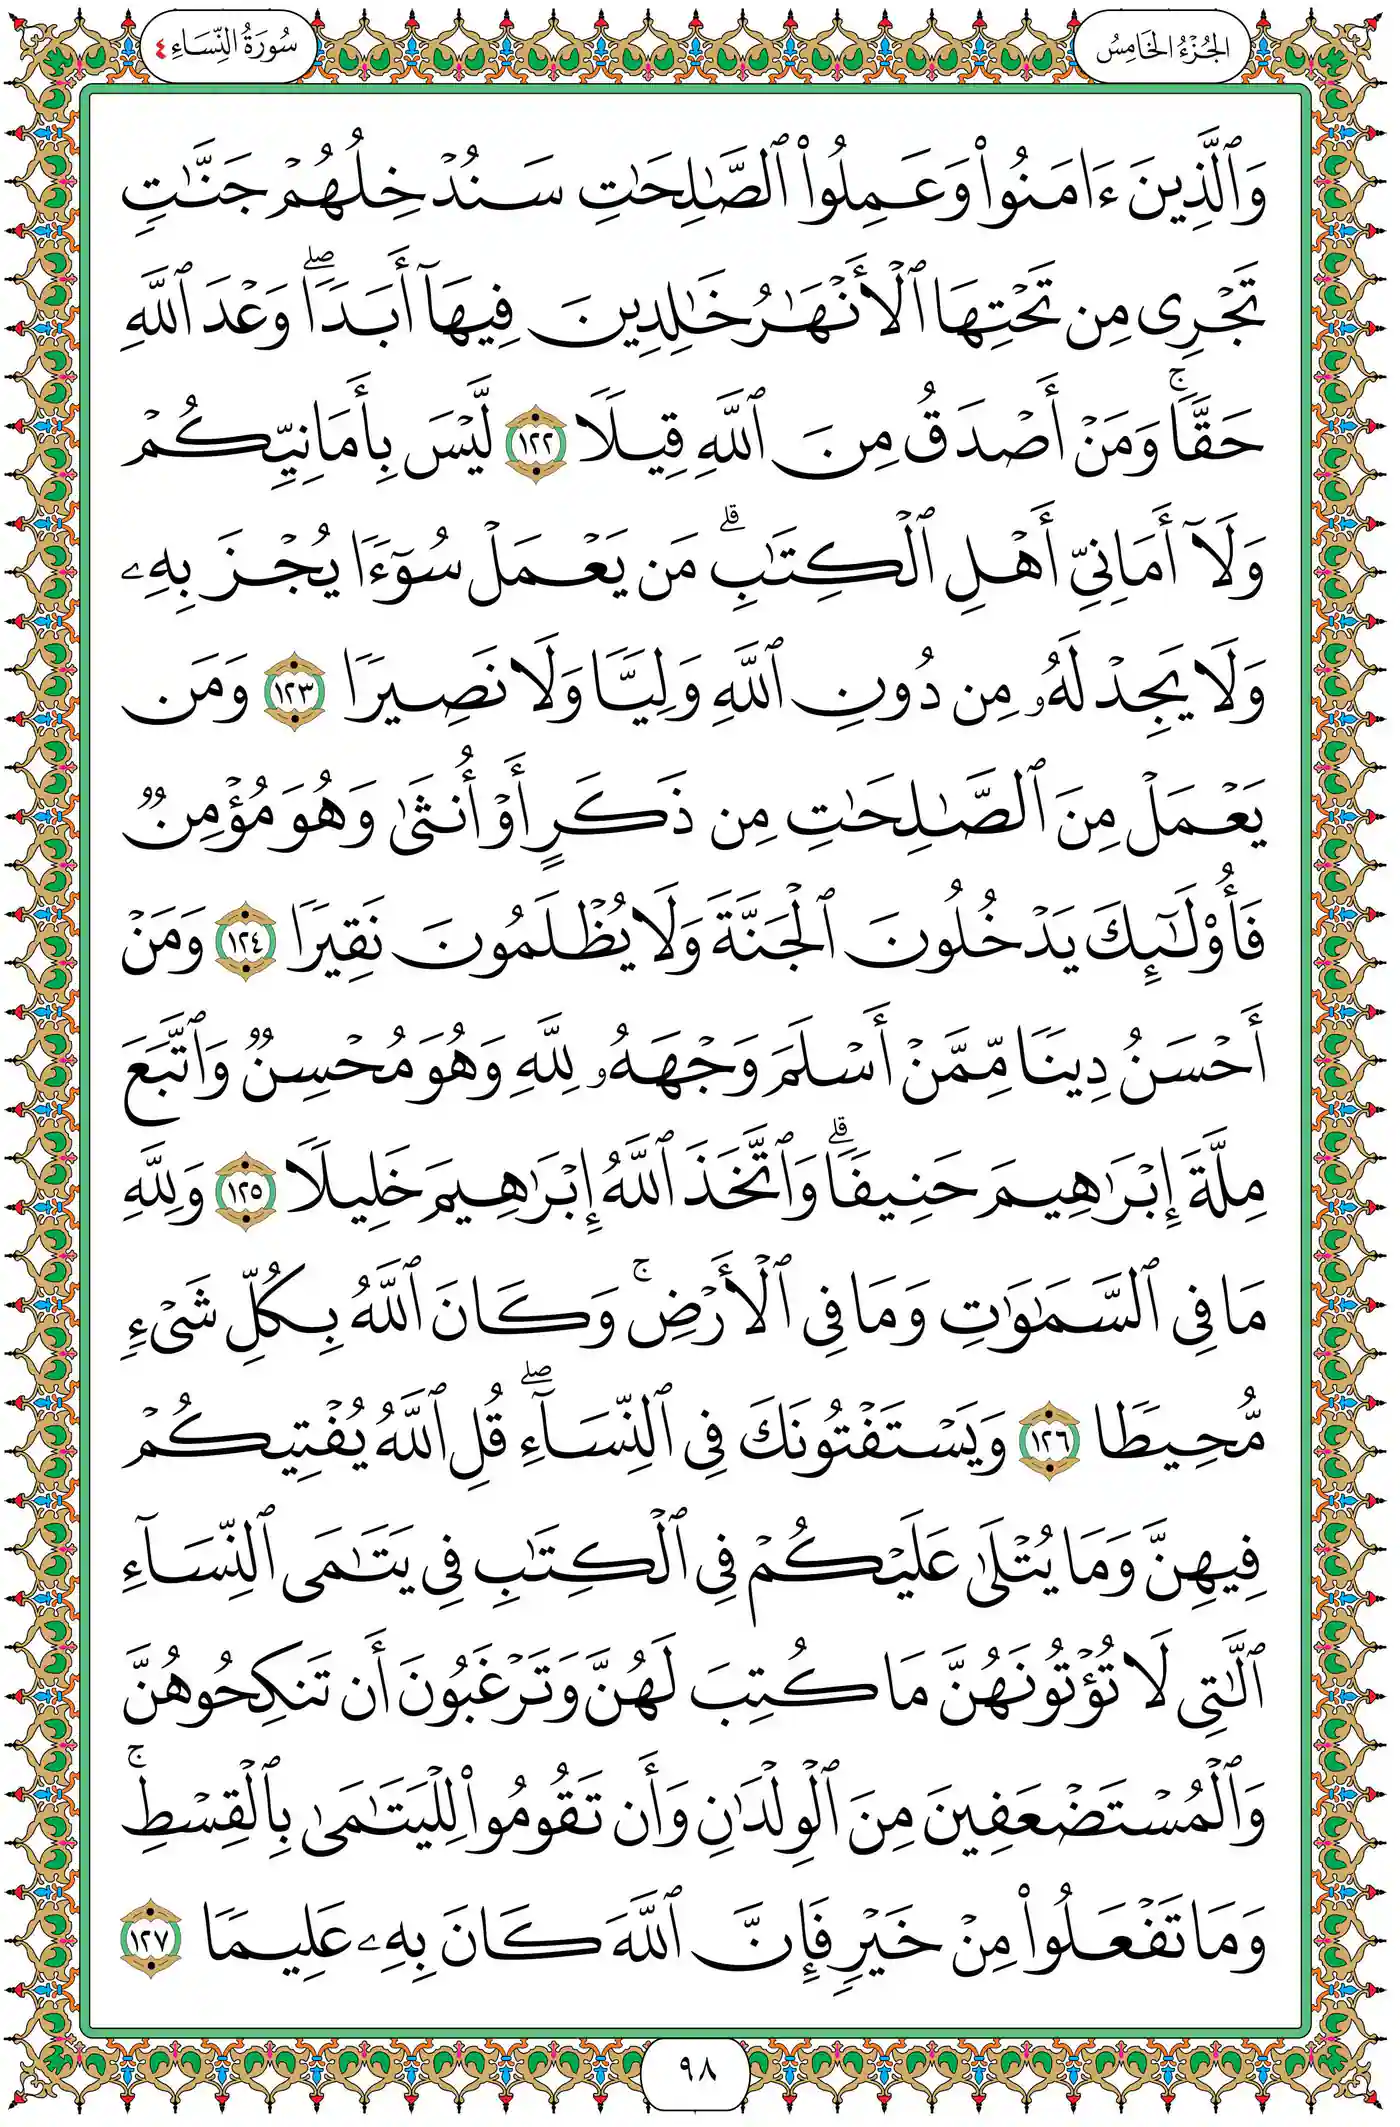 الجُزْءُ الخَامِسُ
سُورَةُ النِّسَاءِ ٤
وَٱلَّذِينَ ءَامَنُوا۟ وَعَمِلُوا۟ ٱلصَّٰلِحَٰتِ سَنُدْخِلُهُمْ جَنَّٰتٍ
تَجْرِى مِن تَحْتِهَا ٱلْأَنْهَٰرُ خَٰلِدِينَ فِيهَآ أَبَدًا ۖ وَعْدَ ٱللَّهِ
حَقًّا ۚ وَمَنْ أَصْدَقُ مِنَ ٱللَّهِ قِيلًا ١٢٢ لَّيْسَ بِأَمَانِيِّكُمْ
وَلَآ أَمَانِىِّ أَهْلِ ٱلْكِتَٰبِ ۗ مَن يَعْمَلْ سُوٓءًا يُجْزَ بِهِۦ
وَلَا يَجِدْ لَهُۥ مِن دُونِ ٱللَّهِ وَلِيًّا وَلَا نَصِيرًا ١٢٣ وَمَن
يَعْمَلْ مِنَ ٱلصَّٰلِحَٰتِ مِن ذَكَرٍ أَوْ أُنثَىٰ وَهُوَ مُؤْمِنٌ
فَأُو۟لَٰٓئِكَ يَدْخُلُونَ ٱلْجَنَّةَ وَلَا يُظْلَمُونَ نَقِيرًا ١٢٤ وَمَنْ
أَحْسَنُ دِينًا مِّمَّنْ أَسْلَمَ وَجْهَهُۥ لِلَّهِ وَهُوَ مُحْسِنٌ وَٱتَّبَعَ
مِلَّةَ إِبْرَٰهِيمَ حَنِيفًا ۗ وَٱتَّخَذَ ٱللَّهُ إِبْرَٰهِيمَ خَلِيلًا ١٢٥ وَلِلَّهِ
مَا فِى ٱلسَّمَٰوَٰتِ وَمَا فِى ٱلْأَرْضِ ۚ وَكَانَ ٱللَّهُ بِكُلِّ شَىْءٍ
مُّحِيطًا ١٢٦ وَيَسْتَفْتُونَكَ فِى ٱلنِّسَآءِ ۖ قُلِ ٱللَّهُ يُفْتِيكُمْ
فِيهِنَّ وَمَا يُتْلَىٰ عَلَيْكُمْ فِى ٱلْكِتَٰبِ فِى يَتَٰمَى ٱلنِّسَآءِ
ٱلَّٰتِى لَا تُؤْتُونَهُنَّ مَا كُتِبَ لَهُنَّ وَتَرْغَبُونَ أَن تَنكِحُوهُنَّ
وَٱلْمُسْتَضْعَفِينَ مِنَ ٱلْوِلْدَٰنِ وَأَن تَقُومُوا۟ لِلْيَتَٰمَىٰ بِٱلْقِسْطِ ۚ
وَمَا تَفْعَلُوا۟ مِنْ خَيْرٍ فَإِنَّ ٱللَّهَ كَانَ بِهِۦ عَلِيمًا ١٢٧
٩٨